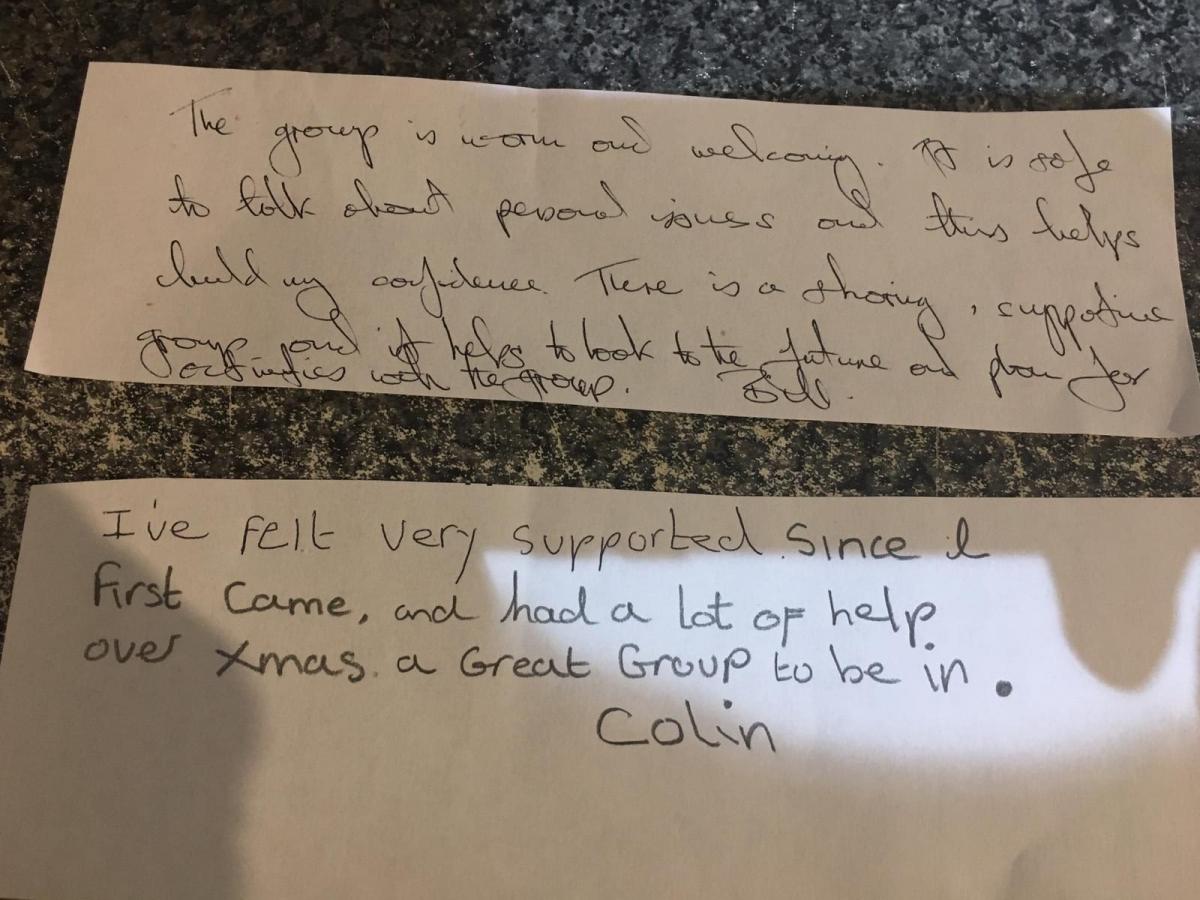 The group is warm and welcoming. It is safe
to talk about personal issues and this helps
build my confidence. There is a sharing, supportive
group and it helps to look to the future and plan for
activities with the group. Bill.
I've felt very supported since I
first came, and had a lot of help
over Xmas. a Great Group to be in.
Colin